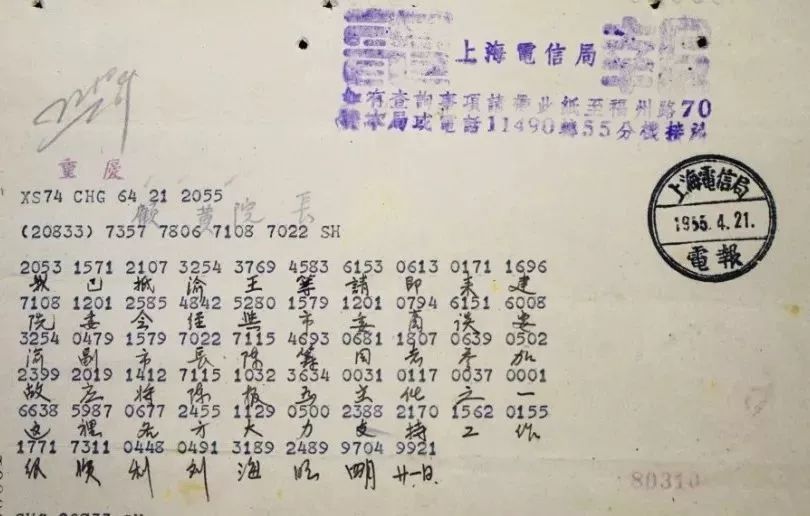 上海電信局
如有查詢事項請帶此紙至福州路70
號本局或電話11490轉55分機接洽
重慶
XS74 CHG 64 21 2055
顧黄院長
(20833) 7357 7806 7108 7022 SH
上海電信局
1955.4.21.
電報
2053 1571 2107 3254 3769 4583 6153 0613 0171 1696
已 抵 渝 王 等 請 即 來 建
7108 1201 2585 4842 5280 1579 1201 0794 6151 6008
院 委 会 经 與 市 委 商 談
3254 0479 1579 7022 7115 4693 0681 1807 0639 0502
渝 副 市 長 陳 籌 同 志 参 加
2399 2019 1412 7115 1032 3634 0031 0117 0037 0001
故 应 将 陳 主 之 一
6638 5987 0677 2455 1129 0500 2388 2170 1562 0155
这 裡 各 方 大 力 支 持 工 作
1771 7311 0448 0491 3189 2489 9704 9921
順 利 海 四月 廿一日
80310